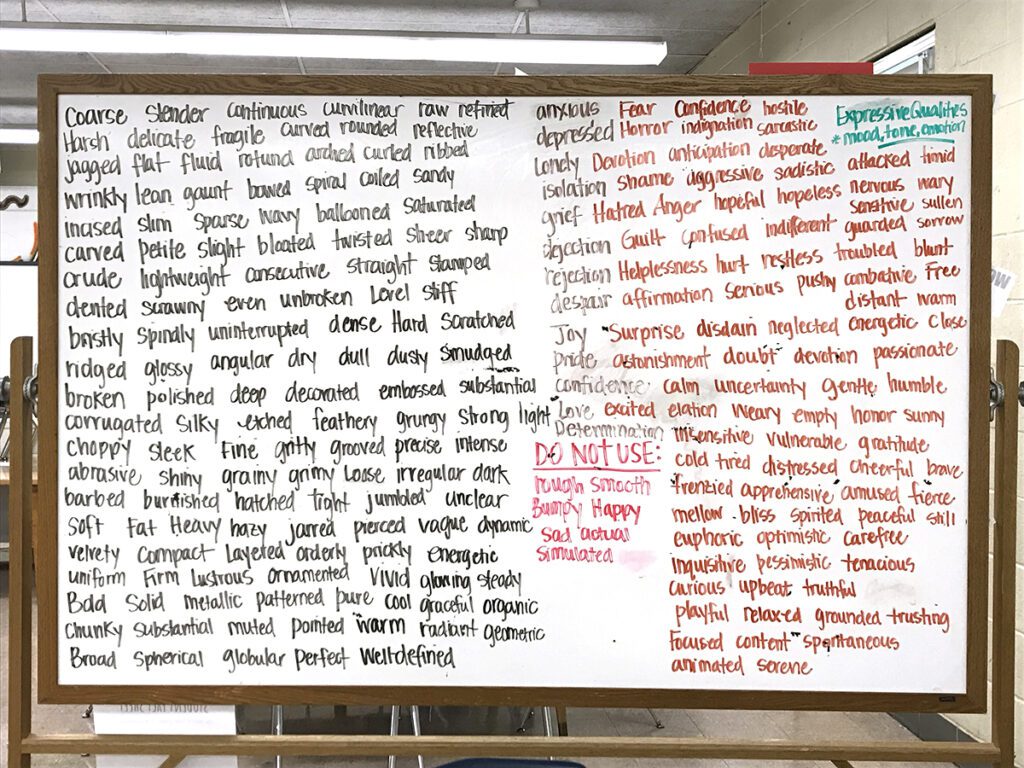 Coarse Slender continuous curvilinear raw refined
Harsh delicate fragile curved rounded reflective
jagged flat fluid rotund arched curled ribbed
wrinkly lean gaunt bowed spiral coiled sandy
incised Slim sparse wavy ballooned saturated
carved Petite slight bloated twisted sheer sharp
crude lightweight consecutive straight stamped
dented scrawny even unbroken Level stiff
bristly Spindly uninterrupted dense Hard Scratched
ridged glossy angular dry dull dusty smudged
broken polished deep decorated embossed substantial
corrugated Silky etched feathery grungy Strong light
Choppy sleek Fine gritty grooved precise intense
abrasive shiny grainy grimy Loose irregular dark
barbed burnished hatched tight jumbled unclear
Soft Fat Heavy hazy jarred pierced vague dynamic
velvety Compact Layered orderly prickly energetic
uniform Firm Lustrous ornamented vivid glowing steady
Bold Solid metallic patterned pure cool graceful organic
Chunky substantial muted pointed warm radiant geometric
Broad Spherical globular Perfect Well-defined
Expressive Qualities
* mood, tone, emotion
anxious Fear Confidence hostile
depressed Horror indignation sarcastic
Lonely Devotion anticipation desperate
isolation Shame aggressive sadistic attacked timid
grief Hatred Anger hopeful hopeless nervous wary
sensitive sullen
dejection Guilt confused indifferent guarded sorrow
rejection Helplessness hurt restless troubled blunt
despair affirmation serious pushy combative Free
distant warm
Joy Surprise disdain neglected energetic Close
Pride astonishment doubt devotion passionate
confidence calm uncertainty gentle humble
Love excited elation Weary empty honor sunny
Determination insensitive vulnerable gratitude
cold tired distressed cheerful brave
frenzied apprehensive amused fierce
mellow bliss spirited peaceful still
euphoric optimistic carefree
Inquisitive pessimistic tenacious
curious upbeat truthful
playful relaxed grounded trusting
Focused content spontaneous
animated serene
DO NOT USE:
rough smooth
Bumpy Happy
Sad actual
Simulated